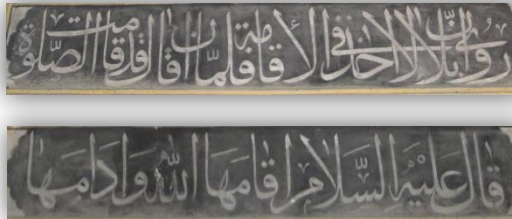 روي أن بلالا أخذ في الإقامة فلما أن قال قد قامت الصلوة
قال عليه السلام اقامها الله وادامها